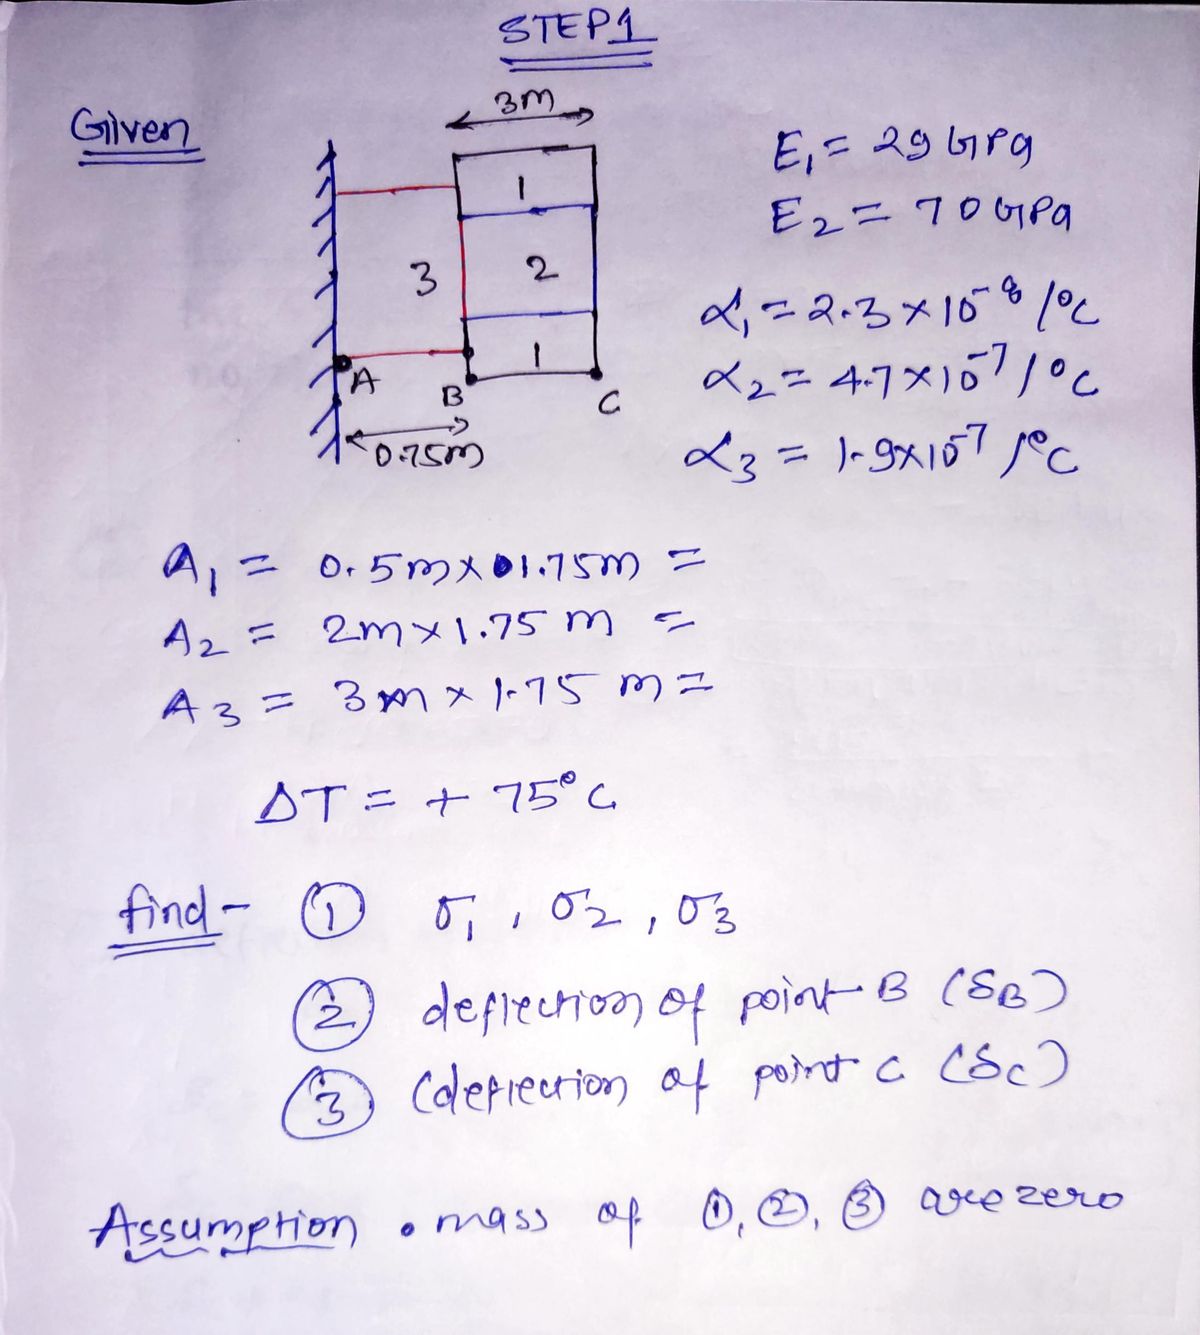 STEP1
Given
3m
E₁ = 29 GPa
E₂ = 70 GPa
1
3
2
α₁ = 2.3 × 10⁻⁸ /°C
α₂ = 4.7 × 10⁻⁷ /°C
1
A
B
C
0.75m
α₃ = 1.9 × 10⁻⁷ /°C
A₁ = 0.5m × 1.75m =
A₂ = 2m × 1.75 m =
A₃ = 3m × 1.75 m =
ΔT = + 75°C
find - ① σ₁ , σ₂ , σ₃
② deflection of point B (δB)
③ (deflection of point C (δc)
Assumption • mass of ①, ②, ③ are zero